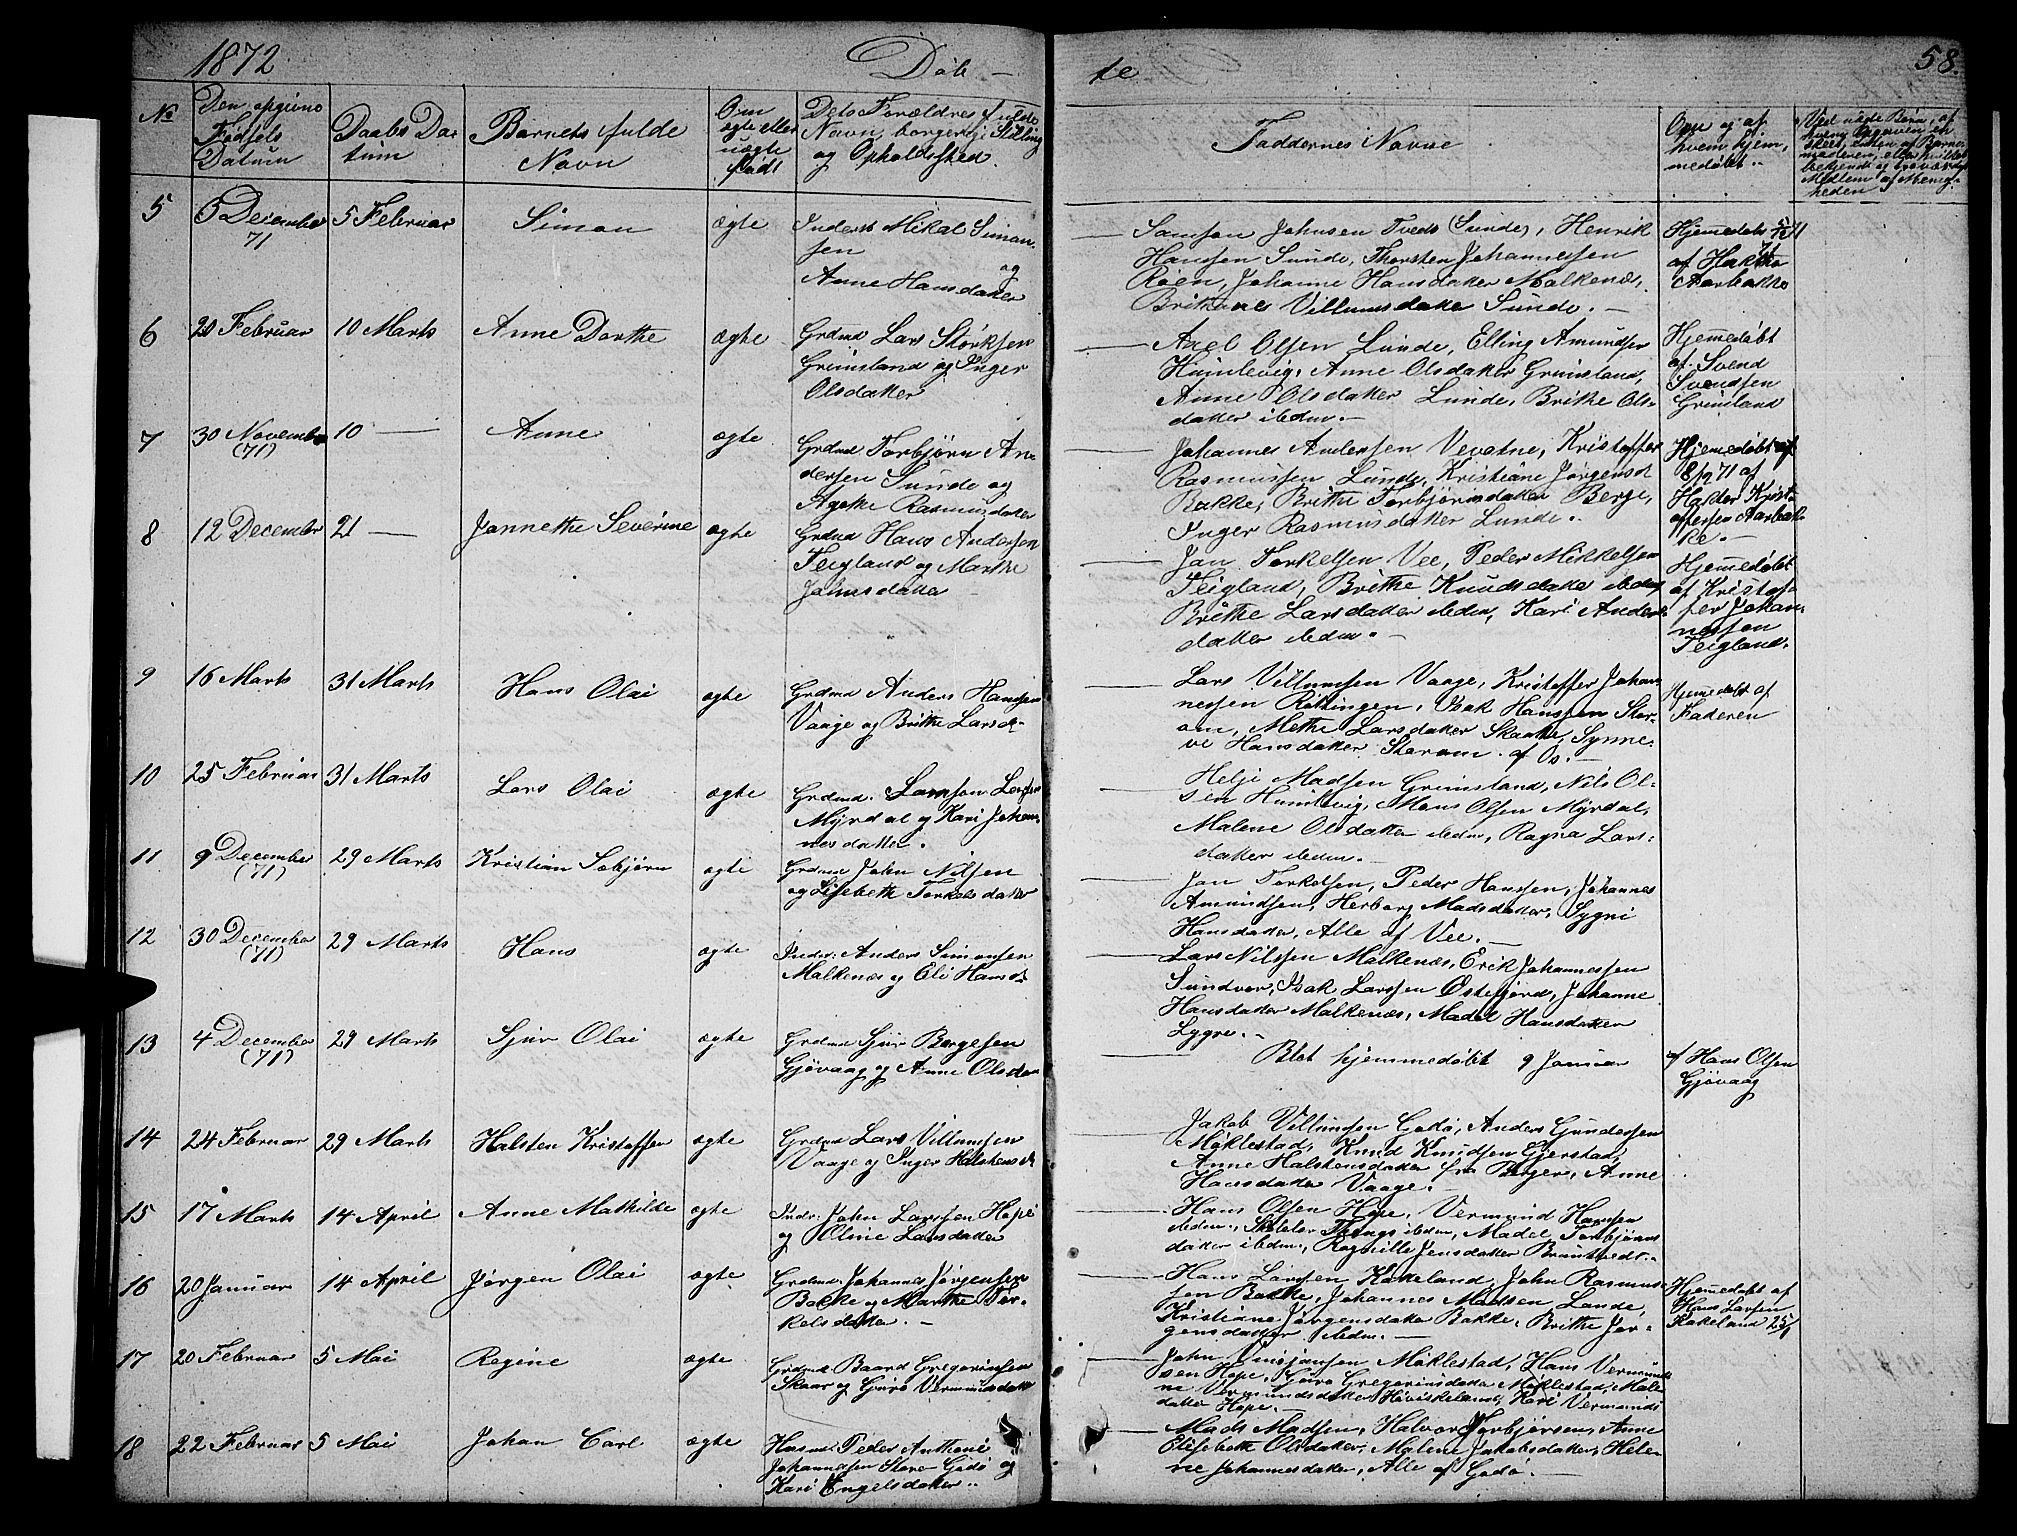 1872
Døb-
te
58.
No
Den opgivne
Fødsels
Datum
Daabs Da-
tum
Barnets fulde
Navn
Om
ægte eller
uægte
født
Dets Forældres fulde
Navn, borgerlig Stilling
og Opholdsted.
Faddernes Navne
Om og af
hvem hjem-
medøbt.
Ved uægte Børn, af
hvem Opgaven er
skeet, enten af Barne-
moderen, eller hvilket
bekjendt og troværdigt
Medlem af Menig-
heden
5
5 December
71
5 Februar
Simon
ægte
Inderst Mikal Simon-
sen
og
Anne Hansdatter
Samson Johnsen Tveds (Sunde), Henrik
Hanssen Sunde, Thorsten Johannessen
Røen, Johanne Hansdatter Malkenæs,
Villumsdatter Sunde.-
Hjemedøbt
af
Aarbakke
6
20 Februar
10 Marts
Anne Dorthe
ægte
Grdmd Lars Størksen
Grimsland og Inger
Olsdatter
Axel Olsen Lunde, Elling Amundsen
Humlevig, Anne Olsdatter Grimsland,
Anne Olsdatter Lunde, Brithe Ols-
datter ibdm.-
Hjemedøbt
af Svend
Svendsen
Grimsland
7
30 November
(71)
10 —
Anne
ægte
Grdmd Torbjørn An-
dersen Sunde og
Agathe Rasmusdatter
Johannes Andersen Vevetne, Kristoffer
Rasmussen Lunde, Kristiane Jørgensd
Bakke, Brithe Torbjørnsdatter Berge,
Inger Rasmusdatter Lunde.
Hjemedøbt
8/12 71 af
Haldor Krist-
offersen Aarbak-
ke.-
8
12 December
21 —
Jannette Severine
ægte
Grdmd Hans Andersen
Teigland og Marthe
Johnsdatter
Jan Torkelsen Vee, Peder Mikkelsen
Teigland, Brithe Knudsdatter ibdm,
Brithe Larsdatter ibdm, Kari Anders-
datter ibdm.-
Hjemedøbt
af Kristof-
fer Johan-
nessen
Teigland.
9
16 Marts
31 Marts
Hans Olai
ægte
Grdmd Anders Hanssen
Vaage og Brithe Larsd-
Lars Villumsen Vaage, Kristoffer Johan-
nessen Røttingen, Isak Hanssen Stor-
om, Methe Larsdatter Skaathe, Synne-
ve Hansdatter Storom. af Os.-
Hjemedøbt af
Faderen
10
25 Februar
31 Marts
Lars Olai
ægte
Grdmd. Samson Larssen
Myrdal og Kari Johan-
nesdatter.
Helje Madsen Grimsland, Nils Ol-
sen Humlevig, Mons Olsen Myrdal,
Malene Olsdatter ibdm, Ragna Lars-
datter ibdm.-
11
9 December
(71)
29 Marts
Kristian Sebjørn
ægte
Grdmd John Nilsen
og Lisebeth Torkelsdatter
Jan Torkelsen, Peder Hanssen, Johannes
Amundsen, Herborg Madsdatter, Sygni
Hansdatter, Alle af Vee.-
12
30 December
(71)
29 Marts
Hans
ægte
Inder: Anders Simonsen
Malkenæs og Oli Hansd-
Lars Nilssen Malkenæs, Erik Johannessen
Sundvor, Isak Larssen Østefjord, Johanne
Hansdatter Malkenæs, Madel Hansdatter
Lygre.-
13
4 December
(71)
29 Marts
Sjur Olai
ægte
Grdmd Sjur Børgesen
Gjøvaag og Anne Olsdatter
Blot hjemmedøbt 9 Januar
af Hans Olsen
Gjøvaag
14
24 Februar
29 Marts
Halsten Kristoffer
ægte
Grdmd Lars Villumsen
Vaage og Inger Halstensd
Jakob Villumsen Godø, Anders Gundersen
Møklestad, Knud Knudsen Gjerstad,
Anne Halstensdatter fra Bergen, Anne
Hansdatter Vaage.-
15
17 Marts
14 April
Anne Mathilde
ægte
Indr. John Larssen Hope
og Oline Larsdatter
Hans Olsen Hope, Vermund Hanssen
ibdm., ibdm, Madel Torbjørns
datter ibdm, Ragnille Jensdatter
16
20 Januar
14 April
Jørgen Olai
ægte
Grdmd. Johannes Jørgensen
Bakke og Marthe Tor-
kelsdatter.-
Hans Larssen Kakeland, John Rasmus-
sen Bakke, Johannes Madsen Lunde,
Kristiane Jørgensdatter Bakke, Brithe Jør-
gensdatter ibdm.-
Hjemedøbt af
Hans Larsen
Kakeland 25/1
17
20 Februar
5 Mai
Regine
ægte
Grdmd Baard Gregoriussen
Skaar og Guro Vermundsdatter
John Møklestad, Hans Vermund-
sen Hope, Guro Gregoriusdatter Møklestad, Male-
ne Vermundsdatter Kari Vermunds
datter Hope.-
18
22 Februar
5 Mai
Johan Carl
ægte
Husmd. Peder Anthoni
Johannessen Store Godø og
Kari Engelsdatter.
Mads Madsen, Halvor Torbjørnsen, Anne
Elisebeth Olsdatter, Malene Jakobsdatter, Hele-
ne Johannesdatter, Alle af Godø.-